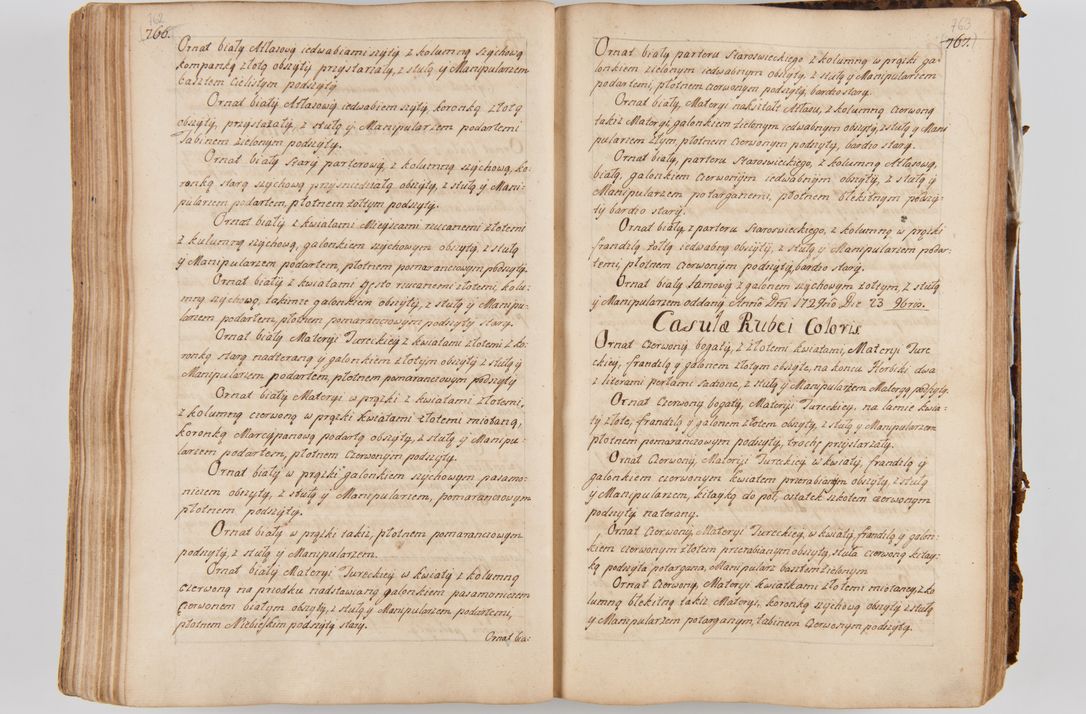 762
766.
Ornat biały Atłasowy iedwabiami szyty z kolumną szychową
kompanką złotą obszyty przystarzały, z stułą y Manipularzem
basztem Cielistym podszyty
Ornat biały Atłasowy iedwabiem szyty, koronką złotą
obszyty, przystarzały, z stułą y Manipularzem podartemi
Tabinem zielonym podszyty.
Ornat biały stary parterowy, z kolumną szychową, ko-
ronką starą szychową przysniedziałą obszyty, z stułą y Mani-
pularzem podartem, płotnem żołtym podszyty.
Ornat biały z kwiatami Mieyscami rzucanemi złotemi
z kulumną szychową, galonkiem szychowym obszyty, z stułą
y Manipularzem podartem, płotnem pomaranciowym podszyty.
Ornat biały z kwiatami gęsto rzucanemi złotemi, kolu-
mną szychową, takimze galonkiem obszyty, z stułą y Manipu-
larzem podartem, płotnem pomaranciowym podszyty stary.
Ornat biały Materyi Tureckiey z kwiatami złotemi z ko-
ronką starą nadteraną y galonkiem złotym obszyty z stułą y
Manipularzem podartem, płotnem pomaranciowym podszyty
Ornat biały Materyi w prążki z kwiatami złotemi,
z kolumną czerwoną w prążki kwiatami złotemi miotaną,
koronką Marcypanową podartą obszyty, z stułą y Manipu-
larzem podartem, płotnem Czerwonym podszyty.
Ornat biały w prążki galonkiem szychowym pasamo-
niczem obszyty, z stułą y Manipularzem, pomaranciowym
płotnem podszyty.
Ornat biały w prążki takiz, płotnem pomaranciowym
podszyty, z stułą y Manipularzem.
Ornat biały Materyi Tureckiey w kwiaty z kolumną
czerwoną na przodku nadstawianą galonkiem pasamoniczem
czerwonem białym obszyty, z stułą y Manipularzem podartemi,
płotnem Niebieskim podszyty stary.
Ornat bia:
763
767.
Ornat biały parteru Staroswieckiego z kolumną w prążki ga-
lonkiem zielonym iedwabnym obszyty, z stułą y Manipularzem
podartemi, płotnem czerwonym podszyty, bardzo stary.
Ornat biały, Materyi nakształt Atłasu, z kolumną czerwoną
takiz Materyi, galonkiem zielonym iedwabnym obszyty, z stułą y Mani
pularzem złym, płotnem Czerwonym podszyty, bardzo stary.
Ornat biały, parteru Staroswieckiego, z kolumną Atłasową,
białą, galonkiem czerwonym iedwabnym obszyty, z stułą y
Manipularzem potarganemi, płotnem błekitnym podszy-
ty bardzo stary.
Ornat biały z parteru Staroswieckiego, z kolumną w prążki
frandzlą żołtą iedwabną obszyty, z stułą y Manipularzem podar-
temi, płotnem czerwonym podszyty, bardzo stary.
Ornat biały Lamowy z galonem szychowym żołtym, z stułą
y Manipularzem oddany Anno Dni 1729no Die 23 9bris.
Casulæ Rubei Coloris
Ornat Czerwony bogaty, z złotemi kwiatami, Materyi Ture
ckiey, frandzlą y galonem złotym obszyte, na koncu Herbiki dwa
z literami perłami sadzone, z stułą y Manipularzem Materyą podszyty.
Ornat Czerwony bogaty, Materyi Tureckiey, na lamie kwia-
ty złote, frandzlą y galonem złotem obszyty, z stułą y Manipularzem
płotnem pomaranciowym podszyty, trochę przystarzały.
Ornat Czerwony, Materyi Tureckiey w kwiaty, frandzlą y
galonkiem czerwonym kwiatem przerabianym obszyty, z stułą
y Manipularzem, kitayką do poł, ostatek szkotem czerwonym
podszyty naterany.
Ornat Czerwony, Materyi Tureckiey, w kwiaty, frandzlą y galon-
kiem czerwonym złotem przerabianym obszyty, stuła czerwoną kitay-
ką podszyta potargana, Manipularz basztem zielonym
Ornat Czerwony, Materyi kwiatkami złotemi miotaney z ko
lumną błekitną takiz Materyi, koronką szychową obszyty z stułą
y Manipularzem potarganym, tabinem Czerwonym podszyty.